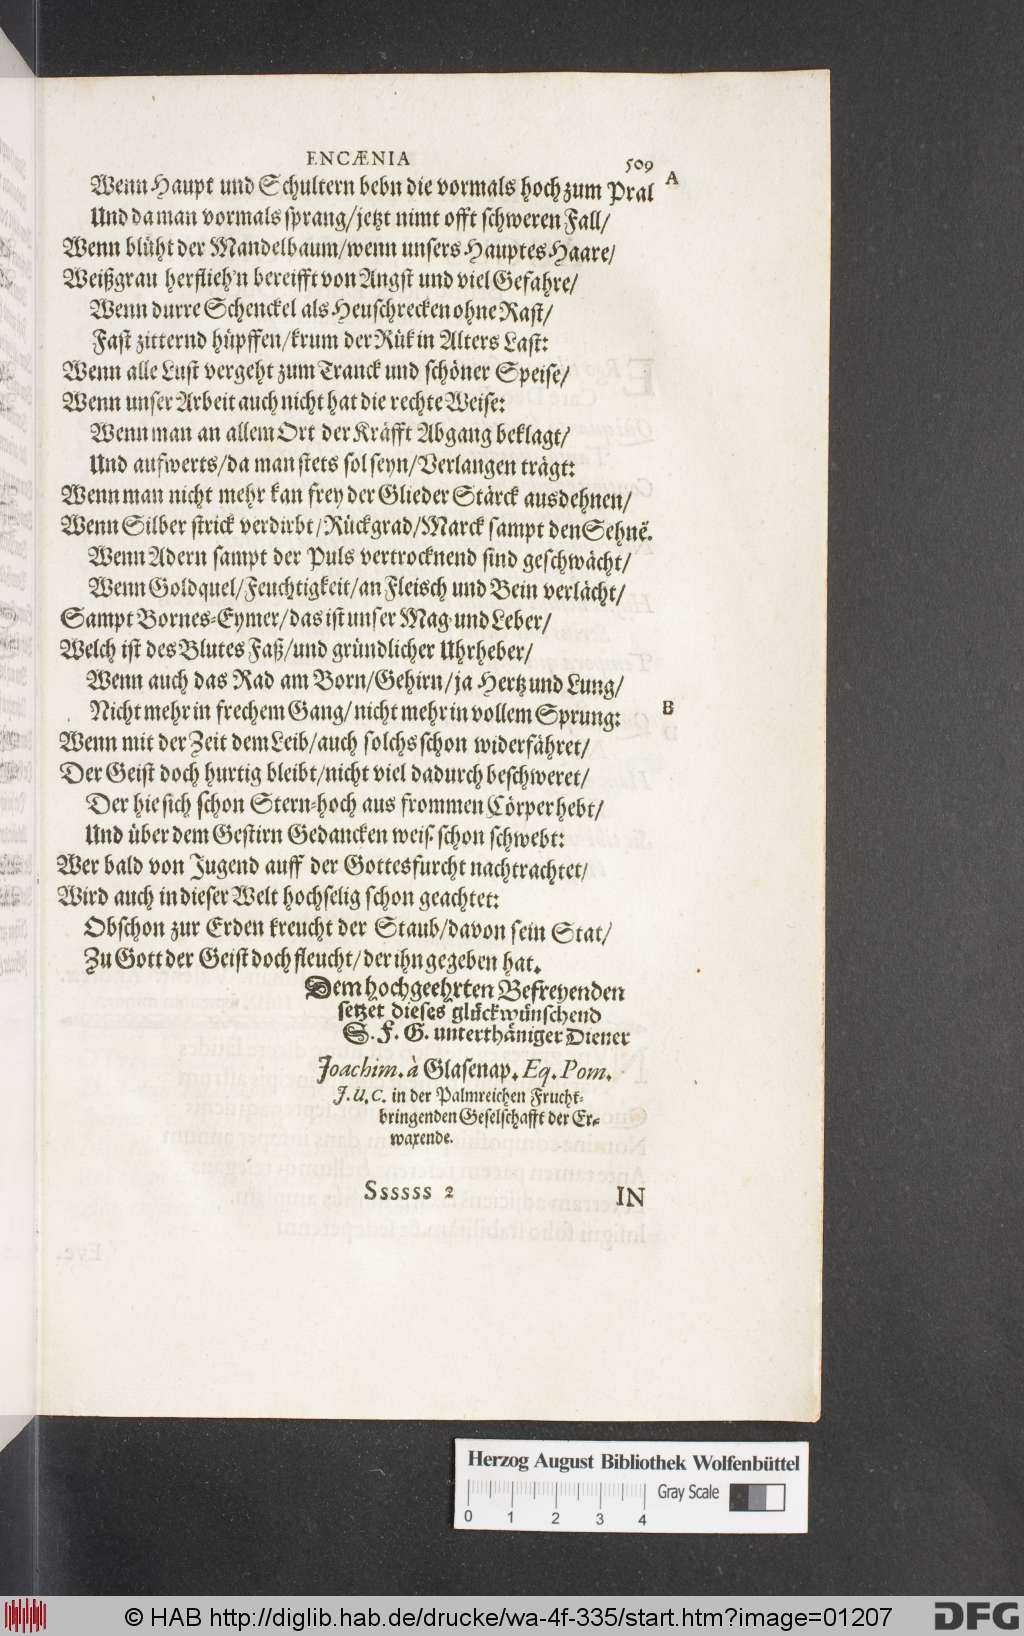 ENCÆNIA 509
Wenn Haupt und Schultern bebn die vormals hoch zum Pral A
Und da man vormals sprang/jetzt nimt offt schweren Fall/
Wenn blüht der Mandelbaum/wenn unsers Hauptes Haare/
Weißgrau herflieh'n bereifft von Angst und viel Gefahre/
Wenn durre Schenckel als Heuschrecken ohne Rast/
Fast zitternd hüpffen/krum der Rük in Alters Last:
Wenn alle Lust vergeht zum Tranck und schöner Speise/
Wenn unser Arbeit auch nicht hat die rechte Weise:
Wenn man an allem Ort der Kräfft Abgang beklagt/
Und aufwerts/da man stets sol seyn/Verlangen trägt:
Wenn man nicht mehr kan frey der Glieder Stärck ausdehnen/
Wenn Silber strick verdirbt/Rückgrad/Marck sampt den Sehnē.
Wenn Adern sampt der Puls vertrocknend sind geschwächt/
Wenn Goldquel/Feuchtigkeit/an Fleisch und Bein verlächt/
Sampt Bornes-Eymer/das ist unser Mag und Leber/
Welch ist des Blutes Faß/und gründlicher Uhrheber/
Wenn auch das Rad am Born/Gehirn/ja Hertz und Lung/
Nicht mehr in frechem Gang/nicht mehr in vollem Sprung: B
Wenn mit der Zeit dem Leib/auch solchs schon widerfähret/
Der Geist doch hurtig bleibt/nicht viel dadurch beschweret/
Der hie sich schon Stern-hoch aus frommen Cörper hebt/
Und über dem Gestirn Gedancken weis schon schwebt:
Wer bald von Jugend auff der Gottesfurcht nachtrachtet/
Wird auch in dieser Welt hochselig schon geachtet:
Obschon zur Erden kreucht der Staub/davon sein Stat/
Zu Gott der Geist doch fleucht/der ihn gegeben hat.
Dem hochgeehrten Befreyenden
setzet dieses glückwünschend
S. F. G. unterthäniger Diener
Joachim. à Glasenap. Eq. Pom.
J. U. C. in der Palmreichen Frucht-
bringenden Geselschafft der Er-
waxende.
Ssssss 2 IN
Herzog August Bibliothek Wolfenbüttel
Gray Scale
0 1 2 3 4
© HAB http://diglib.hab.de/drucke/wa-4f-335/start.htm?image=01207 DFG